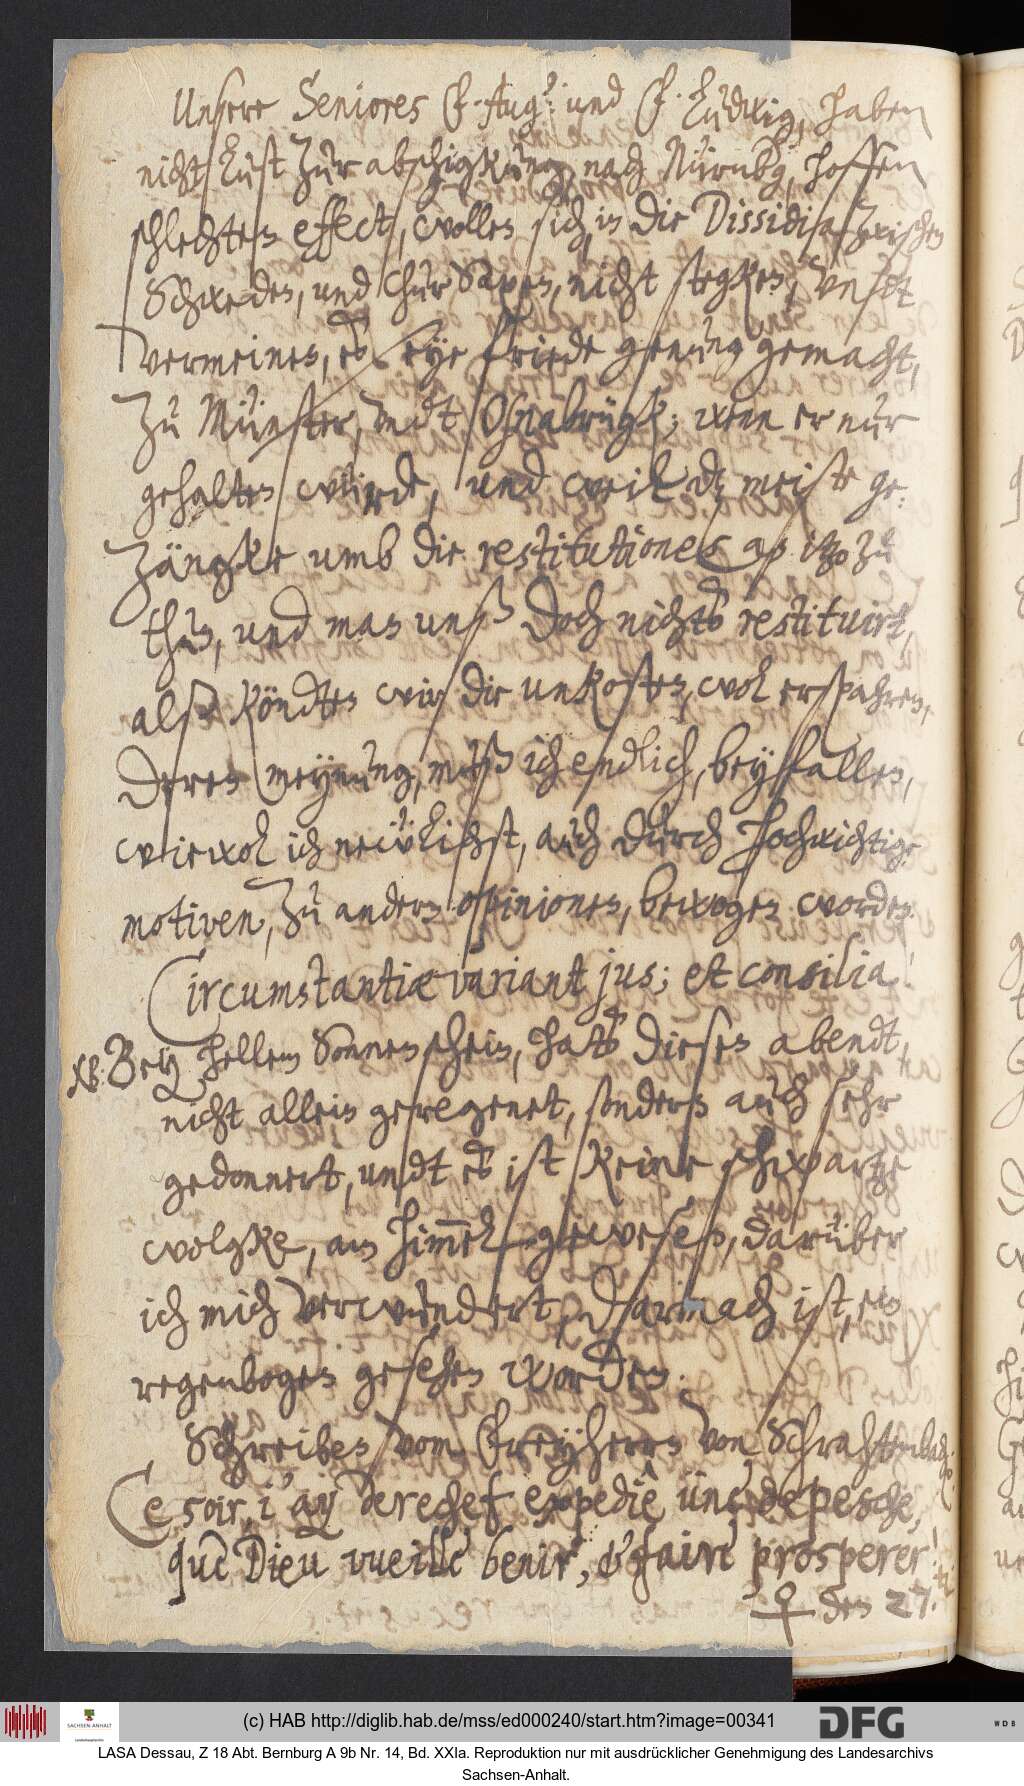 Unsere Seniores F. Aug: und F. Ludwig, haben
nicht lust zur abschigkung nach Nürnbg, hoffen
schlechten effect, wollen sich in die Dissidia zwischen
Schweden, und Chur Saxen, nicht stegken, undt
vermeinen, es seye friede genung gemacht,
zu Münster, undt Oßnabrügk; wenn er nur
gehalten würde, und weil dz meiste ge-
zängke umb die restitutiones ap itzo zu
thun, und man unß doch nichts restituirt,
alß köndten wir die unkosten, wol erspahren,
Deren meynung, muß ich endlich, beyfallen,
wiewol ich neẅlichst, auch durch hochwichtige
motiven, zu andern opinionen, bewogen worden.
Circumstantiæ variant jus; et consilia!
NB: Bey hellem Sonnenschein, hats diesen abendt,
nicht allein geregenet, sondern auch sehr
gedonnert, undt es ist keine schwartze
wolgke, am him̅el gewesen, darüber
ich mich verwundert, Darnach ist, ein
regenbogen gesehen worden.
Schreiben vom Freyherrn von Schrahtembach:
Ce soir, i'ay derechef expediè üne depesche,
que Dieu vueille benir, & faire prosperer!
♀ den 27.
(c) HAB http://diglib.hab.de/mss/ed000240/start.htm?image=00341
SACHSEN-ANHALT
DFG
WDB
LASA Dessau, Z 18 Abt. Bernburg A 9b Nr. 14, Bd. XXIa. Reproduktion nur mit ausdrücklicher Genehmigung des Landesarchivs
Sachsen-Anhalt.